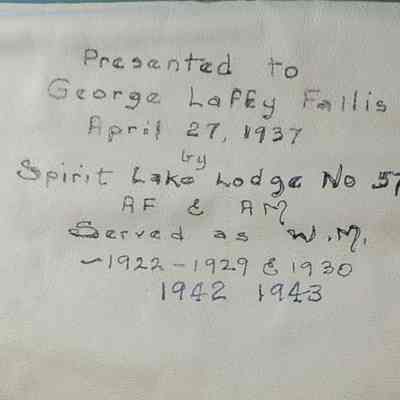 Presented to
George Laffey Fallis
April 27, 1937
by
Spirit Lake Lodge No 57
AF & AM
Served as W.M.
-1922-1929 & 1930
1942 1943